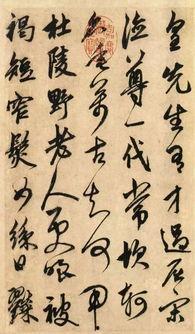 皇先生有才過屈宋
德尊一代常坎軻
名垂萬古知何用
杜陵野老人更嗤被
褐短窄鬢如絲日糴